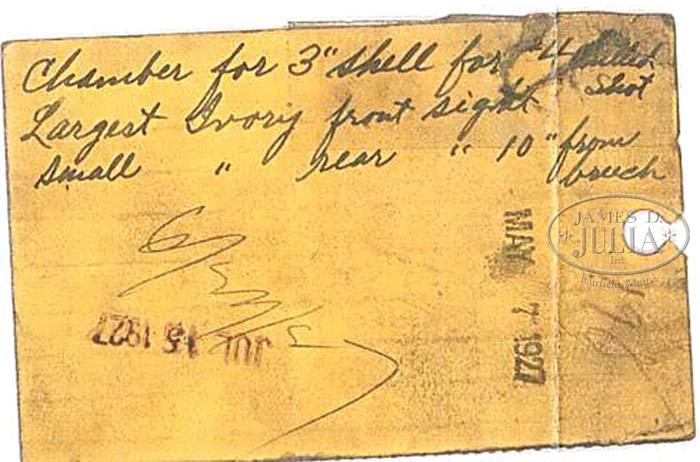 Chamber for 3" shell for #4 Chilled
Shot
Largest Ivory front sight
small " rear " 10" from
breech
MAY 7 1927
JUL 15 1927
JAMES D.
JULIA
Inc.
Fairfield, Maine